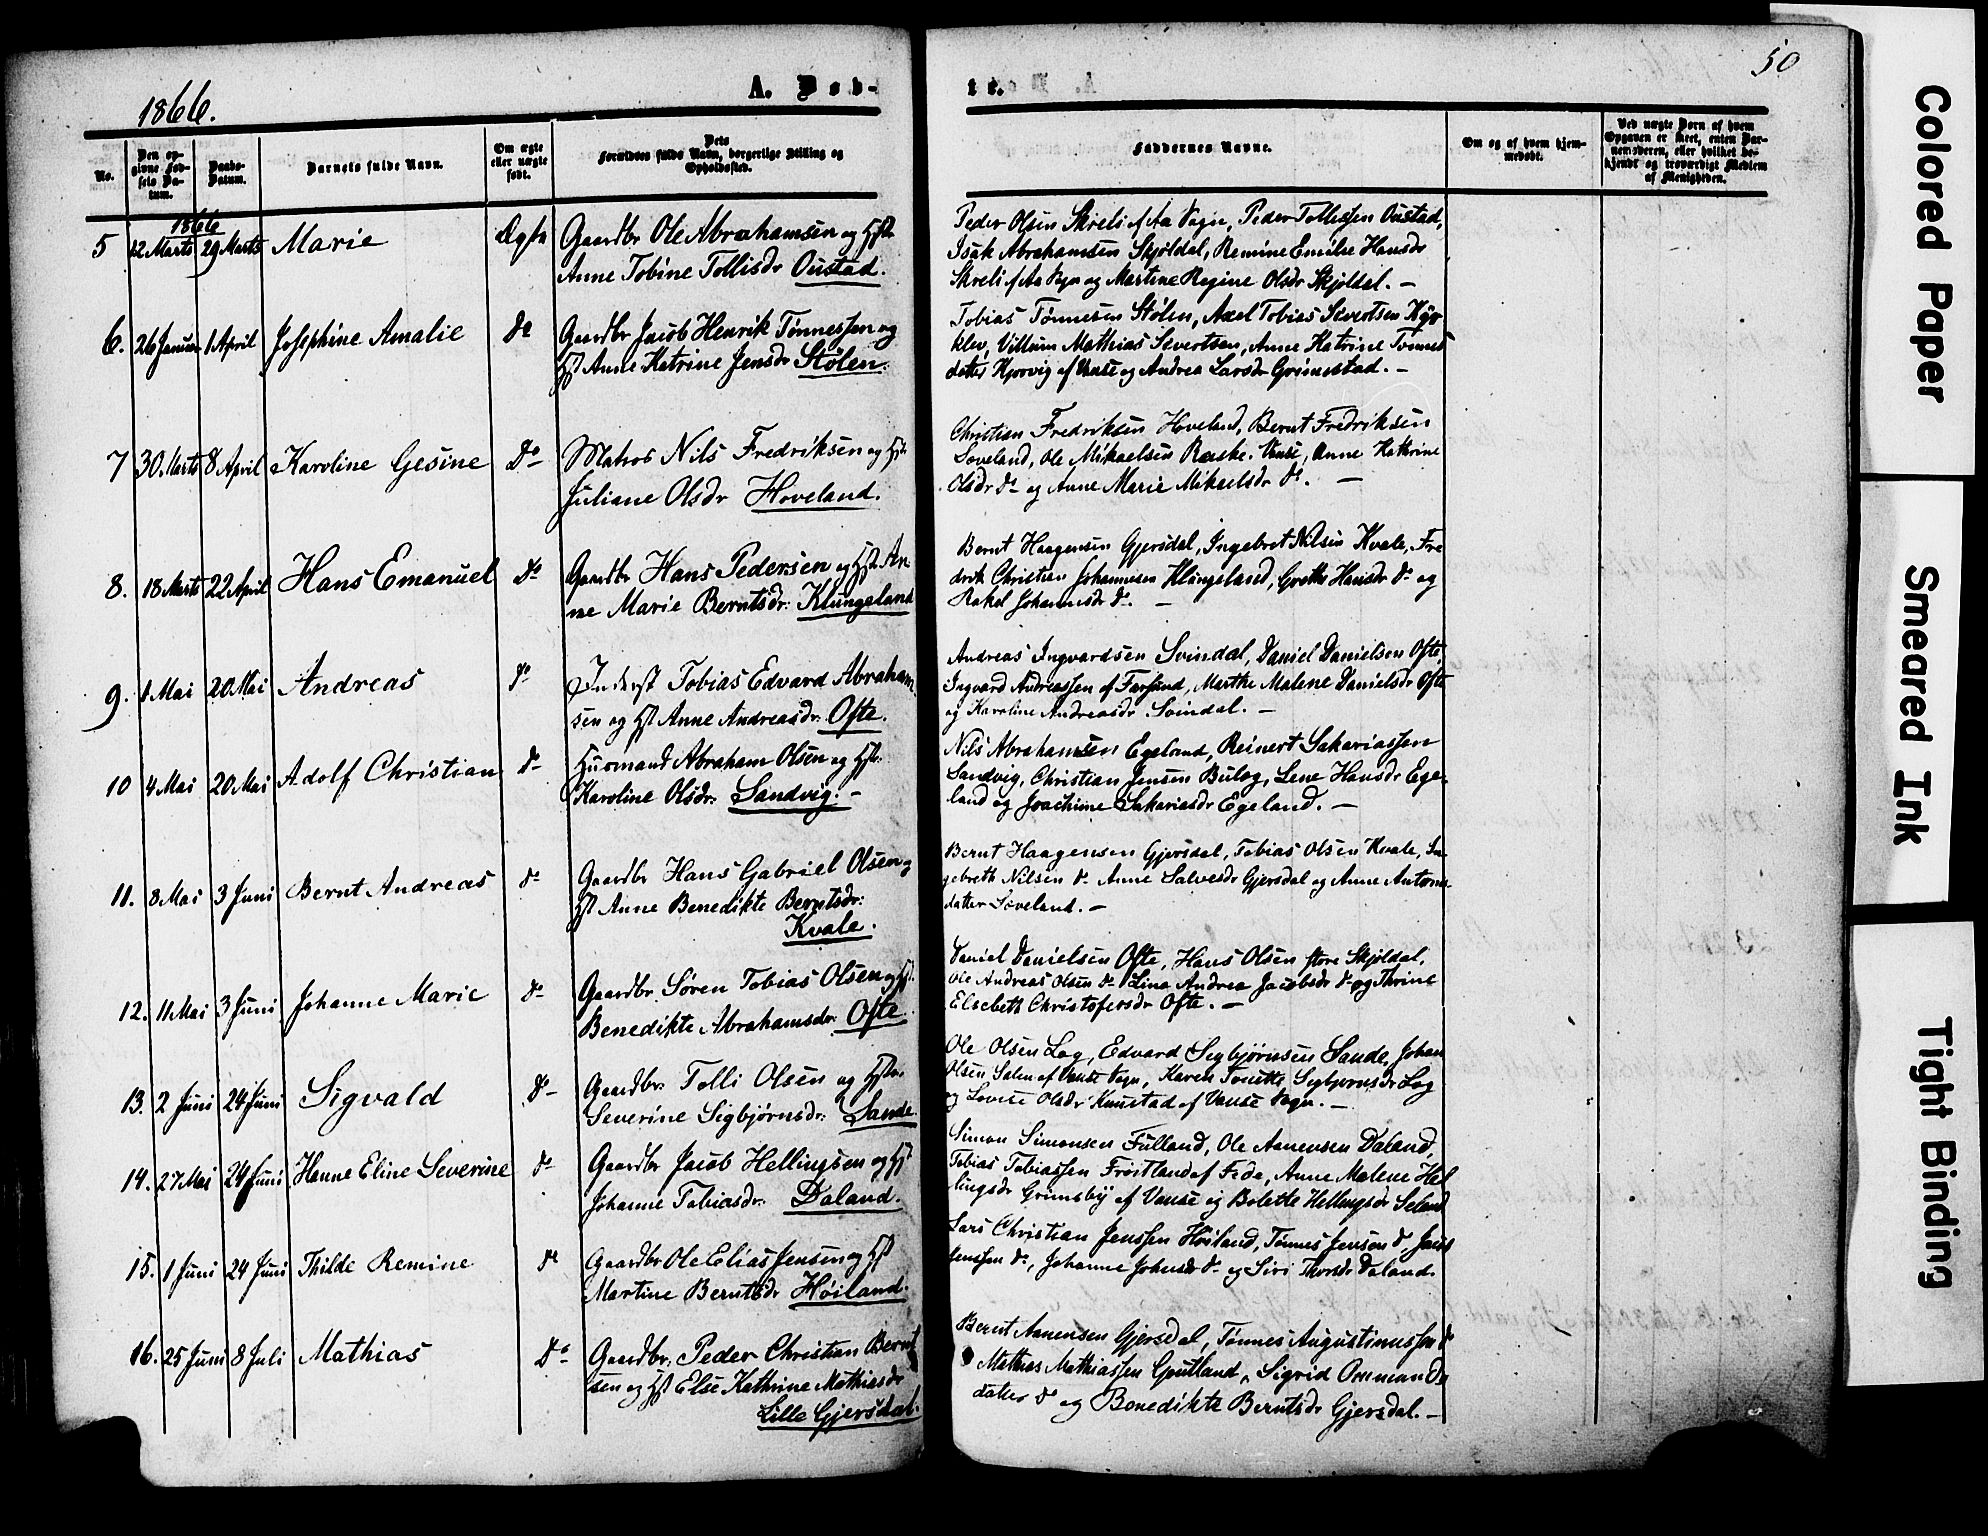 1866.
A. Døb-
te.
50
No.
Den op-
givne Fød-
sels Da-
tum.
Daabs-
Datum.
Barnets fulde Navn.
Om ægte
eller uægte
født.
Dets
Forældres fulde Navn, borgerlige Stilling og
Opholdssted.
Faddernes Navne.
Om og af hvem hjem-
medøbt.
Ved uægte Børn af hvem
Opgaven er skeet, enten Bar-
nemoderen, eller hvilket be-
kjendt og troværdigt Medlem
af Menigheden.
1866
5 12 Marts 29 Marts Marie Ægte Gaardbr Ole Abrahamsen og Hstr
Anne Tobine Tollisdr Oustad.
Peder Olsen Skreli af Aa Sogn, Peder Tollessen Oustad,
Isak Abrahamsen Skjoldal, Remine Emilie Hansdr
Skreli af Aa Sgn og Martine Regine Olsdr Skjoldal. —
6. 26 Januar 1 April Josephine Amalie do Gaardbr Jacob Henrik Tønnessen og
Hst Anne Katrine Jensdr Stølen.
Tobias Tønnesen Stølen, Axel Tobias Sivertsen
klev, Villum Mathias Sivertsen, Anne Katrine Tønnes
datter Kjorvig af Vanse og Andrea Larsdr Grimestad. —
7 30. Marts 8 April Karoline Gesine Do Matros Nils Fredriksen og Hstr
Juliane Olsdr Hoveland.
Christian Fredriksen Hoveland, Bernt Fredriksen
Loveland, Ole Mikaelsen Ræske. Vanse, Anne Kathrine
Olsdr do og Anne Marie Mikaelsdr do. —
8. 18 Marts 22 April Hans Emanuel do Gaardbr Hans Pedersen og Hst. An-
ne Marie Berntsdr: Klungeland
Bernt Haagensen Gjersdal, Ingebret Nilsen Kvale, Fre
drik Christian Johannesen Klungeland, Grethe Hansdr do og
Rakel Johannesdr do. —
9. 1 Mai 20 Mai Andreas do Inderst Tobias Edvard Abraham
sen og Hst Anne Andreasdr. Ofte.
Andreas Ingvardsen Svindal, Daniel Danielsen Ofte,
Ingvard Andreassen af Farsund, Marthe Malene Danielsdr Ofte
og Karoline Andreasdr Svindal. —
10 4 Mai 20 Mai Adolf Christian do Husmand Abraham Olsen og Hstr.
Karoline Olsdr. Sandvig. —
Nils Abrahamsen Egeland, Reinert Sakariassen
Sandvig, Christian Jensen Buløg, Lene Hansdr Ege-
land og Joachime Sakariasdr Egeland. —
11. 8 Mai 3 Juni Bernt Andreas do Gaardbr Hans Gabriel Olsen og
Hst Anne Benedikte Berntsdr:
Kvale.
Bernt Haagensen Gjersdal, Tobias Olsen Kvale, In-
gebreth Nilsen do Anne Salvesdr Gjersdal og Anne Antons-
datter Loveland. —
12. 11 Mai 3 Juni Johanne Marie do Gaardbr. Søren Tobias Olsen og Hst.
Benedikte Abrahamsdr. Ofte.
Daniel Danielsen Ofte, Hans Olsen store Skjoldal,
Ole Andreas Olsen do Lina Andrea Jacobsdr do og Thrine
Elsebeth Christofersdr Ofte. —
13. 2 Juni 24 Juni Sigvald do Gaardbr. Tolli Olsen og Hstr.
Severine Sigbjørnsdr: Sande
Ole Olsen Log, Edvard Sigbjørnsen Sande, Johan
Olsen Salen af Vanse Sogn, Karen Tonette Sigbjørnsdr Log
og Lovise Olsdr Kunstad af Vanse Sogn. —
14. 27 Mai 24 Juni Hanne Eline Severine do Gaardbr Jacob Hellingsen og Hst
Johanne Tobiasdr. Daland.
Simon Simonsen Fulland, Ole Aanensen Daland,
Tobias Tobiassen Frøitland af Fede, Anne Malene Hel
lingsdr Grimsby af Vanse og Bolette Hellingsdr Seland
15. 1 Juni 24 Juni Thilde Remine do Gaardbr Ole Elias Jensen og Hst
Martine Berntsdr Høiland.
Lars Christian Jenssen Høiland, Tønnes Jensen do Jacob
Jenssen do, Johanne Johnsdr do og Siri Thorsdr Daland.
16. 25 Juni 8 Juli Mathias Do Gaardbr. Peder Christian Bernt
sen og Hst Else Kathrine Mathiasdr
Lille Gjersdal.
Bernt Aanensen Gjersdal, Tønnes Augustinussen do
Mathias Mathiassen Gputland, Sigrid Ommunds
datter do og Benedikte Berntsdr Gjersdal. —
Colored Paper
Smeared Ink
Tight Binding